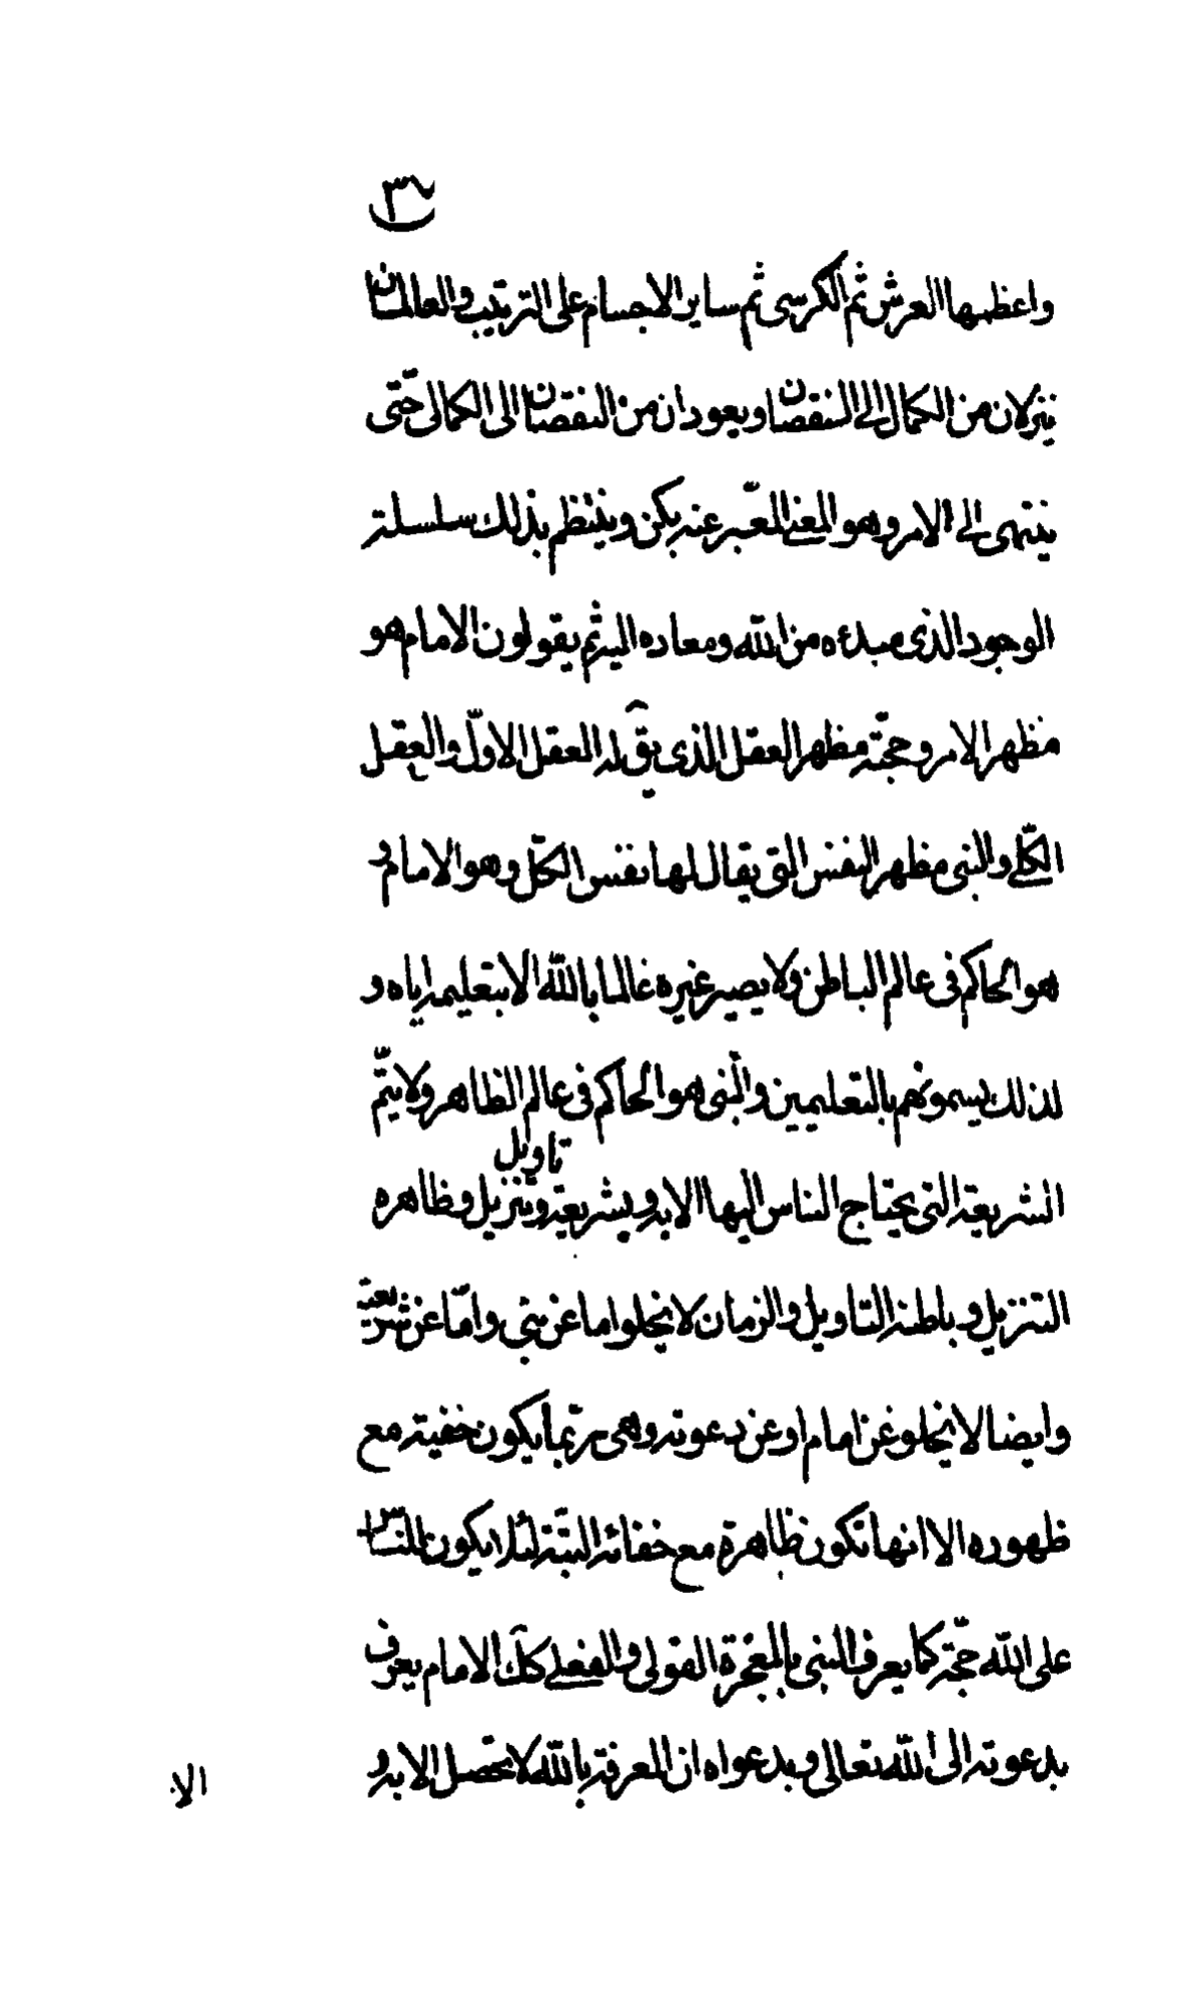 ٣٧
واعظمها العرش ثم الكرسى ثم ساير الاجسام على الترتيب والعالمان
ينزلان من الكمال الى النقصان ويعودان من النقصان الى الكمال حتّى
ينتهى الى الامر وهو المعنى المعبّر عنه بكن وينتظم بذلك سلسلة
الوجود الذى مبدءه من الله ومعاده اليه ثم يقولون الامام هو
مظهر الامر وحجّته مظهر العقل الذى يق له العقل الاوّل والعقل
الكلّى والنبى مظهر النفس التى يقال لها نفس الكلّ وهو الامام و
هو الحاكم فى عالم الباطن ولا يصير غيره عالما بالله الا بتعليمه اياه و
لذلك يسمونهم بالتعليميين والنّبى هو الحاكم فى عالم الظاهر ولا يتمّ
الشريعة التى يحتاج الناس اليها الا به ولشريعته تنزيل وتاويل وظاهره
التنزيل وباطنه التاويل والزمان لا يخلوا اما عن نبى واما عن شريعته
وايضا لا يخلو عن امام او عن دعوته وهى ربّما يكون خفيته مع
ظهوره الا انها تكون ظاهرة مع خفائه البتّة لئلا يكون للنّاس
على الله حجّة كما يعرف النبى بالمعجزة القولى والفعلى كك الامام يعرف
بدعوته الى الله تعالى وبدعواه ان المعرفة بالله لا يحصل الا به و
الا